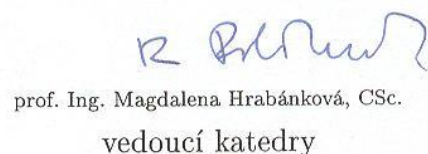 prof. Ing. Magdalena Hrabánková, CSc.
vedoucí katedry